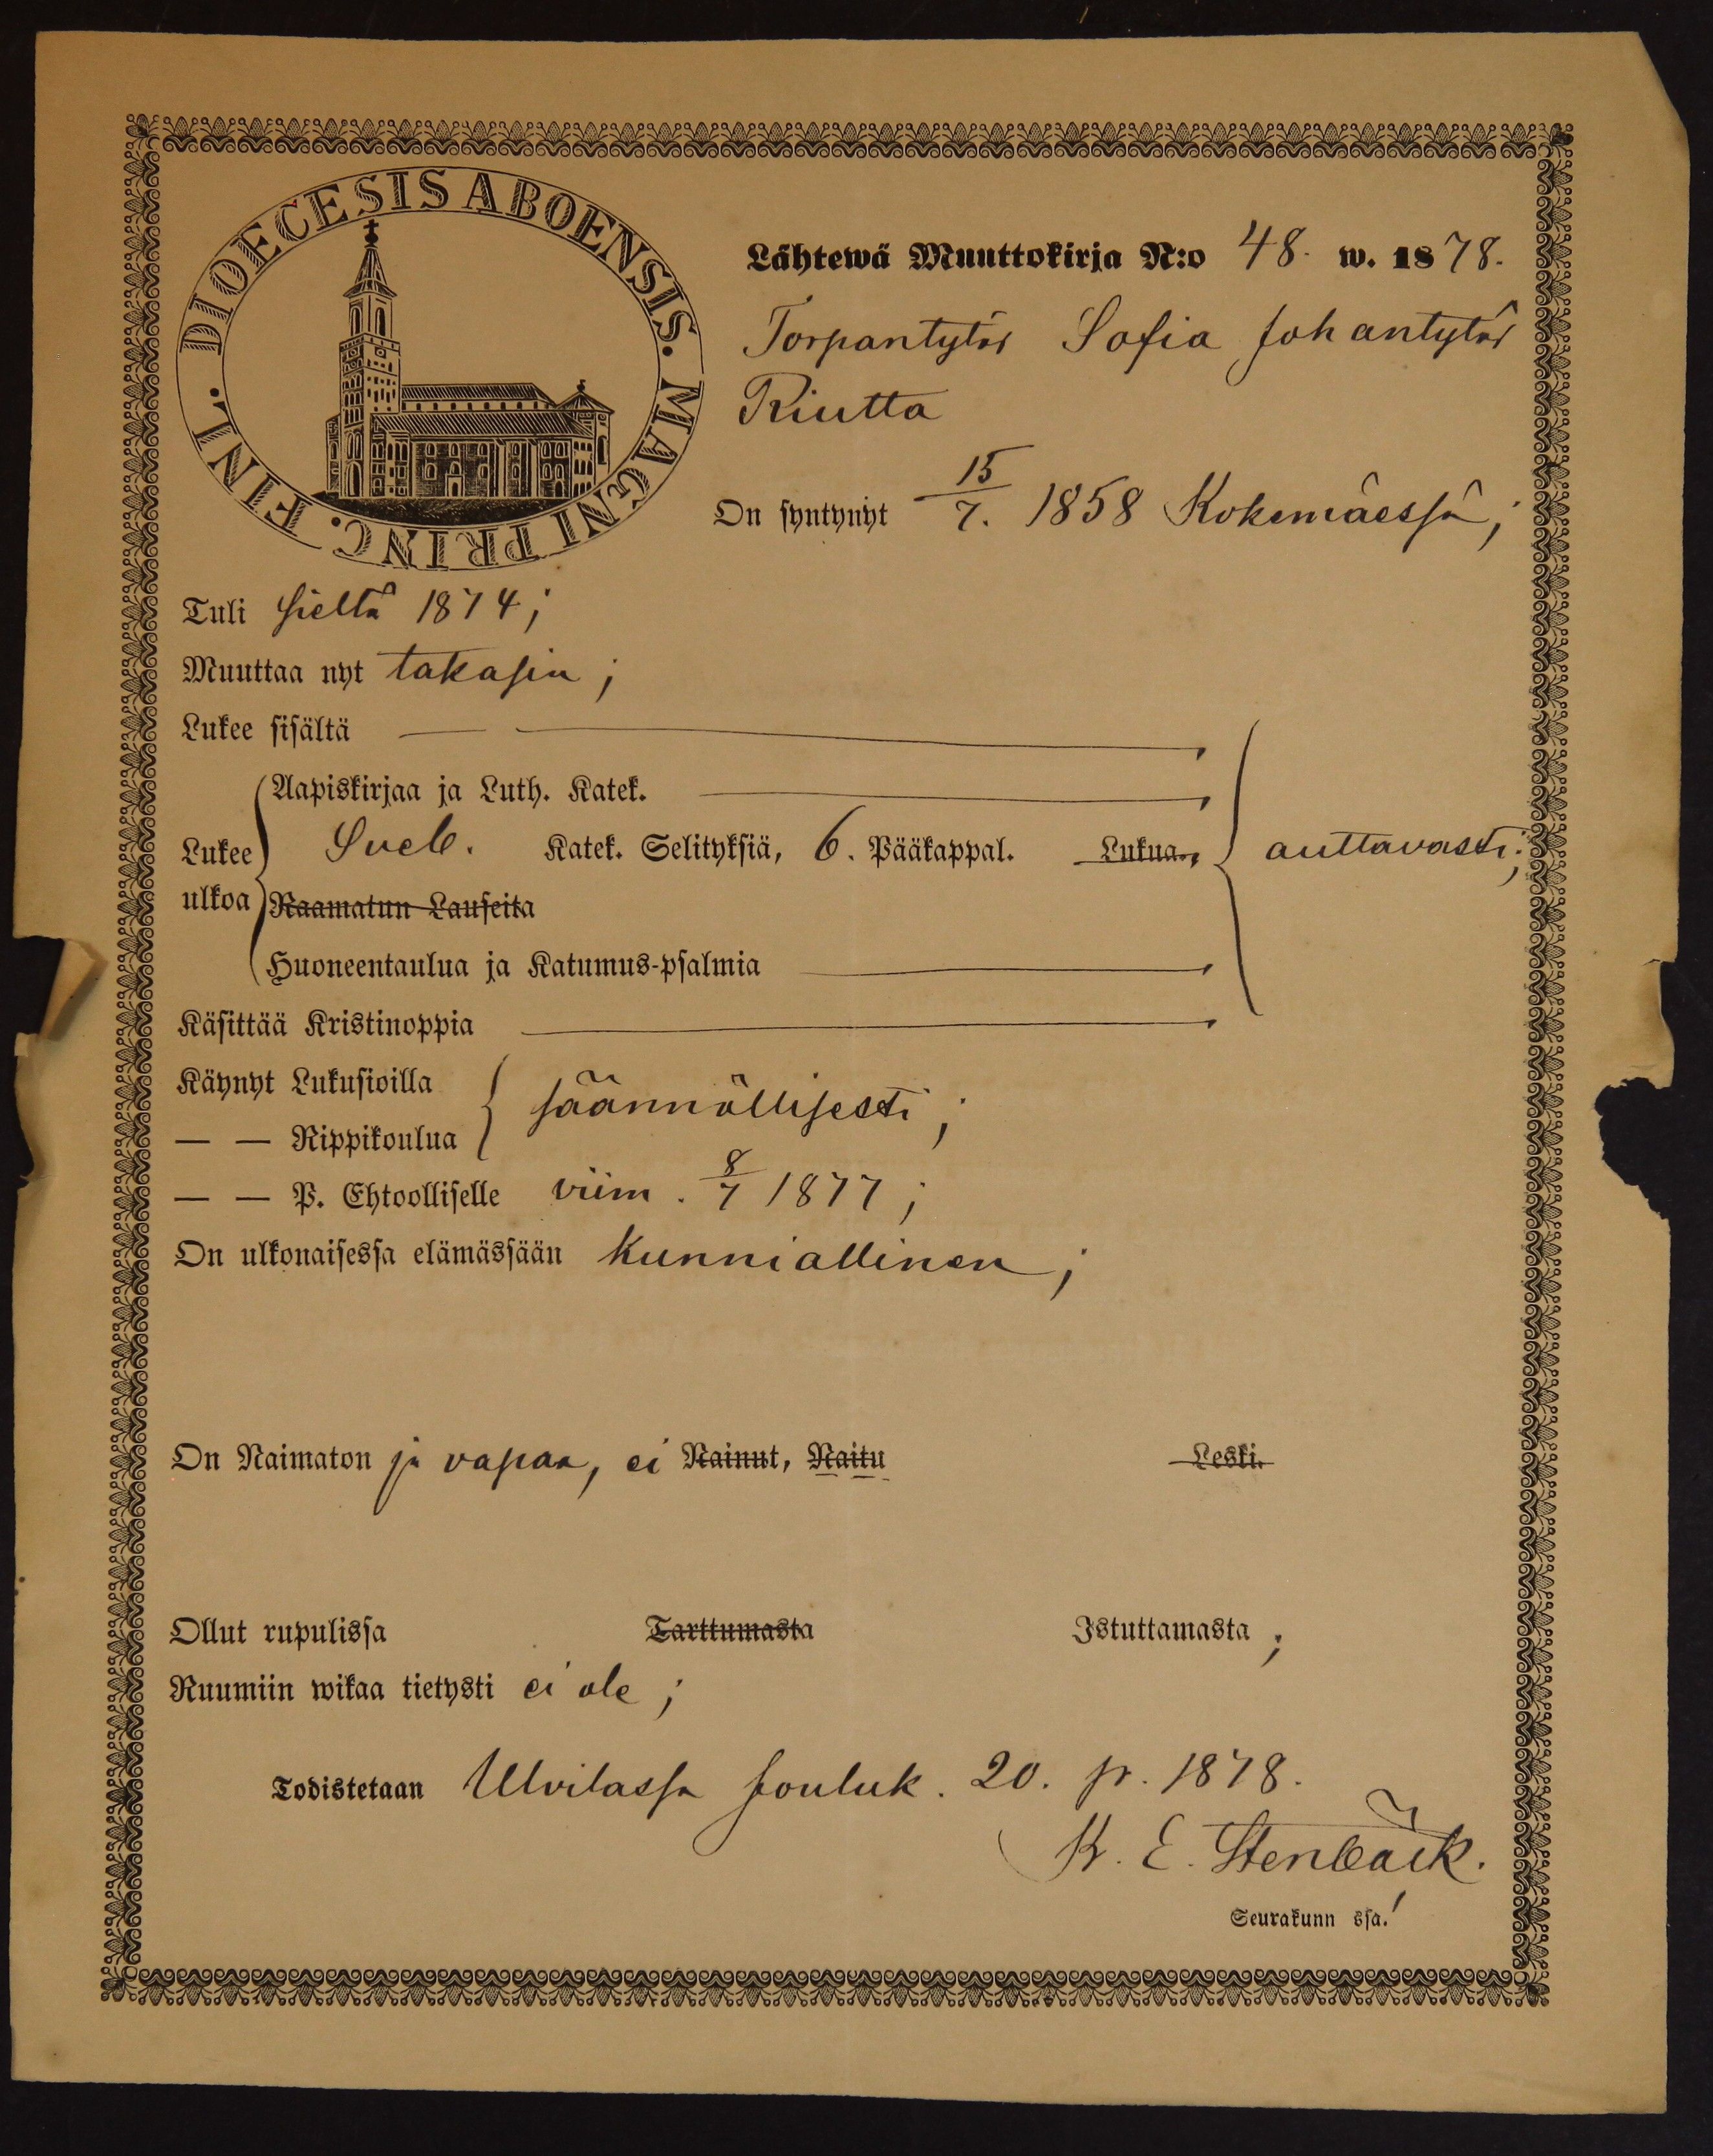 DIOECESIS ABOENSIS. MAGNI PRINC. FINL.
Lähtewä Muuttokirja N:o 48. w. 1878.
Torpantytär Sofia Johantytär
Riutta
On syntynyt 15/7. 1858 Kokemäessä;
Tuli sieltä 1874;
Muuttaa nyt takasin;
Lukee sisältä
Aapiskirjaa ja Luth. Katek.
Lukee Sveb. Katek. Selityksiä, 6. Pääkappal. Lukua., auttavasti;
ulkoa Raamatun Lauseita
Huoneentaulua ja Katumus-psalmia
Käsittää Kristinoppia
Käynyt Lukusioilla
säännöllisesti;
— — Rippikoulua
— — P. Ehtoolliselle viim. 8/7 1877;
On ulkonaisessa elämässään kunniallinen;
On Naimaton ja vapaa, ei Nainut, Naitu Leski.
Ollut rupulissa Tarttumasta Istuttamasta;
Ruumiin wikaa tietysti ei ole;
Todistetaan Ulvilassa Jouluk. 20. p. 1878.
K. E. Stenbäck.
Seurakunn ssa.